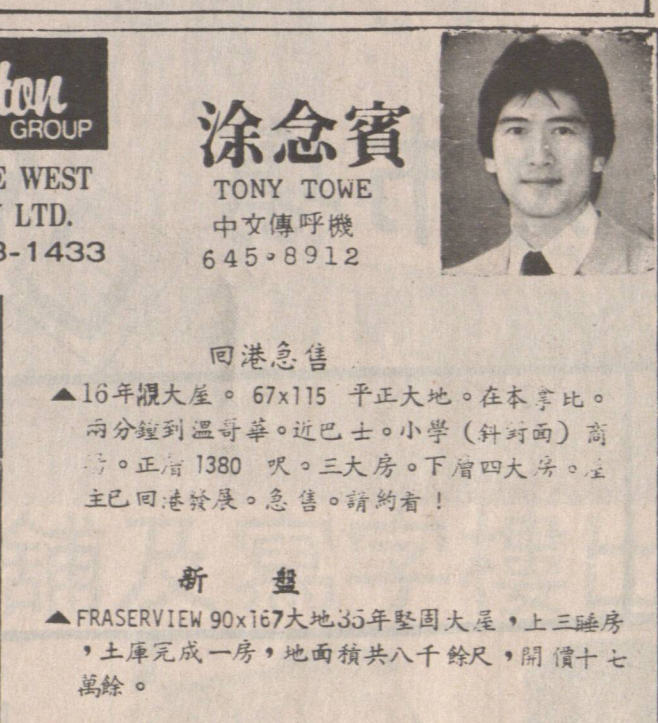 ton
GROUP
E WEST
LTD.
3-1433
涂念賓
TONY TOWE
中文傳呼機
645·8912
回港急售
▲16年靚大屋。67x115 平正大地。在本拿比。
兩分鐘到溫哥華。近巴士。小學（斜對面）商
。正層1380 呎。三大房。下層四大房。屋
主已回港發展。急售。請約看！
新 盤
▲FRASERVIEW 90x167大地35年堅固大屋，上三睡房
，土庫完成一房，地面積共八千餘尺，開價十七
萬餘。